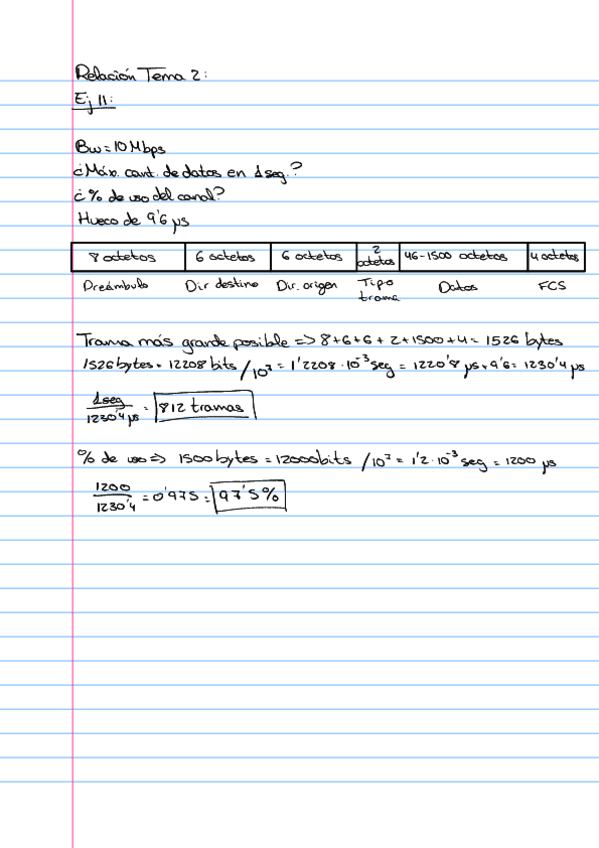 Relación Tema 2:
Ej 11:
Bw = 10 Mbps
¿Máx. cant. de datos en 1 seg.?
¿% de uso del canal?
Hueco de 9'6 µs
8 octetos 6 octetos 6 octetos 2 octetos 46-1500 octetos 4 octetos
Preámbulo Dir destino Dir. origen Tipo trama Datos FCS
Trama más grande posible => 8+6+6+2+1500+4 = 1526 bytes
1526 bytes = 12208 bits / 10⁷ = 1'2208 · 10⁻³ seg = 1220'8 µs + 9'6 = 1230'4 µs
1 seg / 1230'4 µs = 812 tramas
% de uso => 1500 bytes = 12000 bits / 10⁷ = 1'2 · 10⁻³ seg = 1200 µs
1200 / 1230'4 = 0'975 = 97'5%